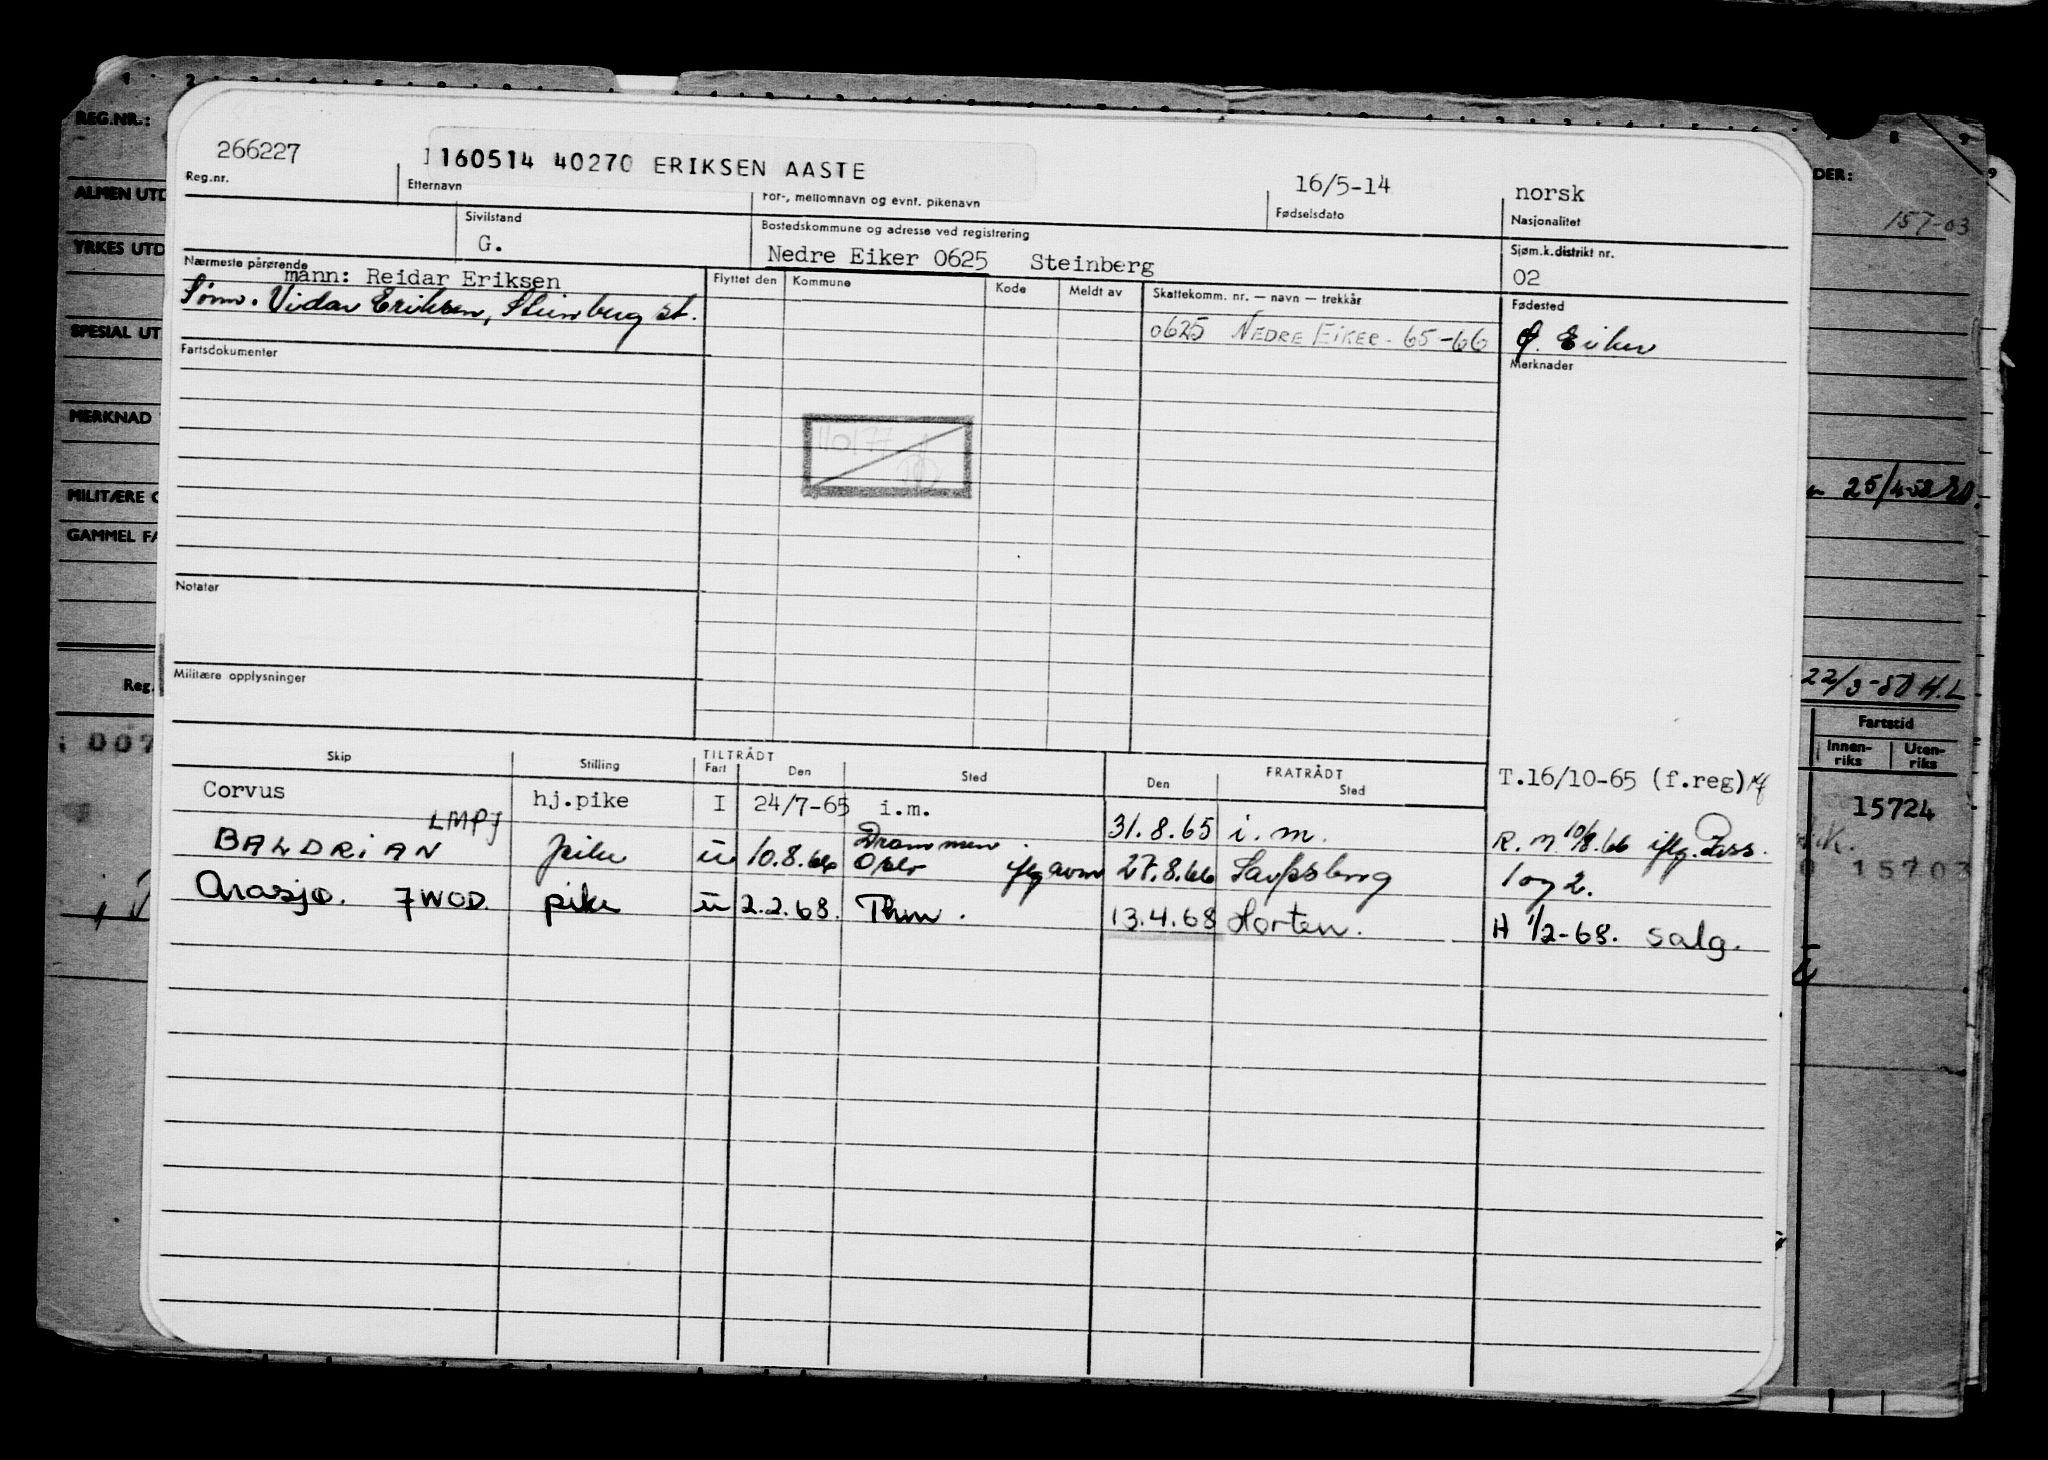 REG.NR.:
ALMEN UTD
YRKES UTD
SPESIAL UT
MERKNAD
MILITÆRE
GAMMEL FA
Reg.
007
266227
160514 40270 ERIKSEN AASTE
16/5-14
norsk
Reg.nr.
Etternavn
For-, mellomnavn og evnt. pikenavn
Fødselsdato
Nasjonalitet
Sivilstand
G.
Bostedskommune og adresse ved registrering
Nedre Eiker 0625 Steinberg
Sjøm.k.distrikt nr.
02
Nærmeste pårørende
mann: Reidar Eriksen
Sønn. Vidar Eriksen, Steinberg st.
Flyttet den
Kommune
Kode
Meldt av
Skattekomm. nr. — navn — trekkår
0625 NEDRE EIKER - 65-66
Fødested
Ø. Eiker
Fartsdokumenter
Merknader
Notater
Militære opplysninger
Skip
Stilling
TILTRÅDT
Fart
Den
Sted
FRATRÅDT
Den
Sted
Corvus hj.pike I 24/7-65 i.m. 31.8.65 i.m. T.16/10-65 (f.reg)
LMPJ
BALDRIAN pike U 10.8.66 Drammen Oslo iflg avm 27.8.66 Sarpsborg R.M. 10/8.66 iflg.
1 og 2.
Arasjø. 7WOD. pike U 2.2.68. 13.4.68 Horten. H 1/2-68. salg.
DER:
157-03
25/4-52
22/3-50 H.L
Fartstid
Innen-
riks
Uten-
riks
15724
15703